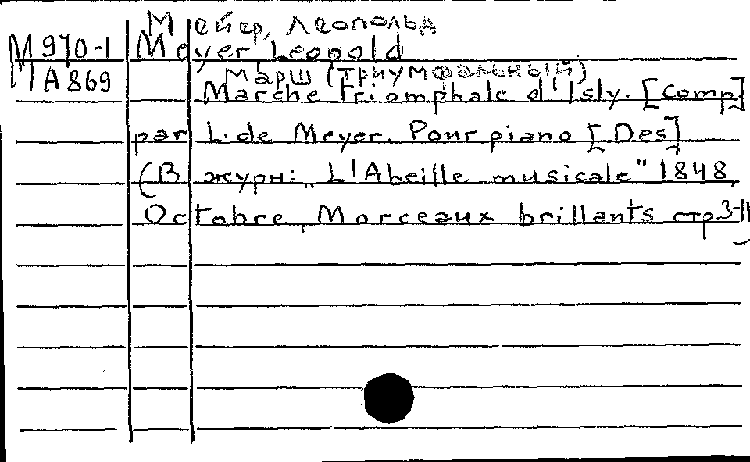 Мейер, Леопольд
М 970-1 Meyer Leopold
Марш (триумфальный)
МА869 Marche triomphale d'Isly. [Comp]
par L. de Meyer. Pour piano [Des]
(В журн: „L'Abeille musicale" 1848,
Octobre, Morceaux brillants стр 3-11